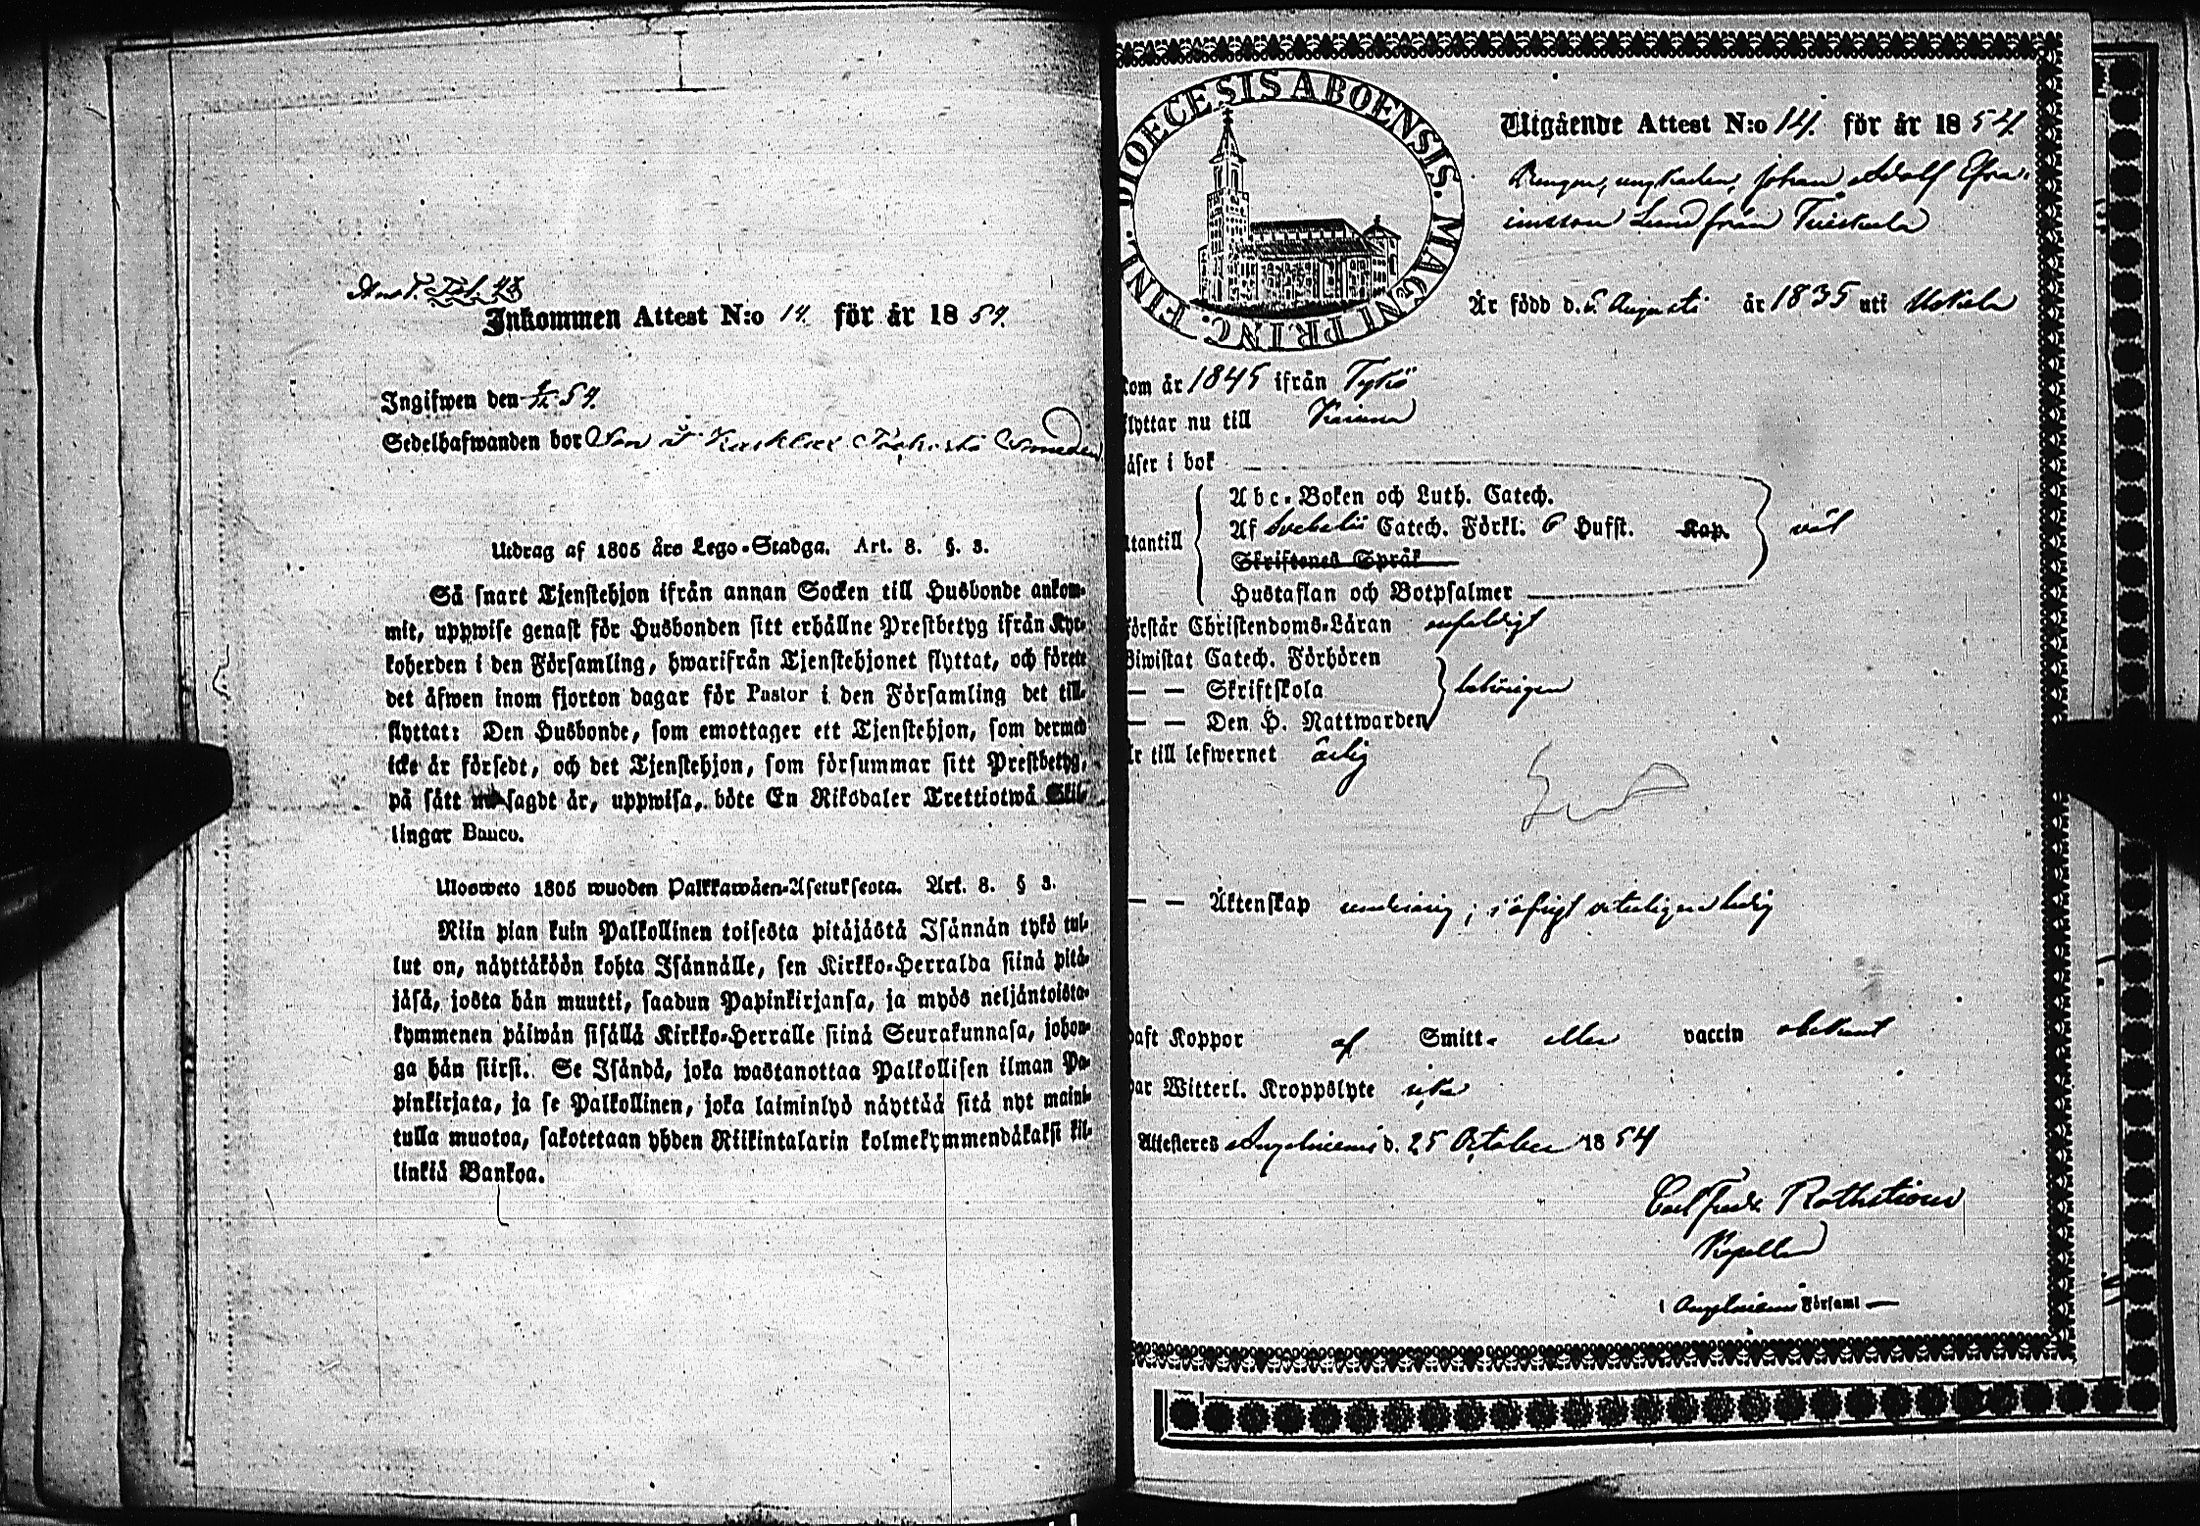 Inkommen Attest N:o 14. för år 1854.
Ingifwen den 54.
Sedelhafwanden bor Smeden
Utdrag af 1805 års Lego-Stadga. Art. 8. §. 3.
Så snart Tjenstehjon ifrån annan Socken till Husbonde ankom-
mit, uppwise genast för Husbonden sitt erhållne Prestbetyg ifrån Kyr-
koherden i den Församling, hwarifrån Tjenstehjonet flyttat, och förete
det äfwen inom fjorton dagar för Pastor i den Församling det till-
flyttat: Den Husbonde, som emottager ett Tjenstehjon, som dermed
icke är försedt, och det Tjenstehjon, som försummar sitt Prestbetyg,
på sätt nu sagdt är, uppwisa, böte En Riksdaler Trettiotwå Skil-
lingar Banco.
Ulosweto 1805 wuoden Palkkawäen-Asetuksesta. Art. 8. § 3.
Niin pian kuin Palkollinen toisesta pitäjästä Isännän tykö tul-
lut on, näyttäköön kohta Isännälle, sen Kirkko-Herralda siinä pitä-
jäsä, josta hän muutti, saadun Papinkirjansa, ja myös neljäntoista-
kymmenen päiwän sisällä Kirkko-Herralle siinä Seurakunnasa, johon-
ga hän siirsi. Se Isändä, joka wastanottaa Palkollisen ilman Pa-
pinkirjata, ja se Palkollinen, joka laiminlyö näyttää sitä nyt maini-
tulla muotoa, sakotetaan yhden Riikintalarin kolmekymmendäkaksi kil-
linkiä Bankoa.
DIOECESIS ABOENSIS. MAGNI PRINC. FINL.
Utgående Attest N:o 14. för år 1854.
Drengen, ungkarlen, Johan Adolf Efra-
imsson Lund från Tuiskula
Är född d. 6 Augusti år 1835 uti Uskela
kom år 1845 ifrån Tykö
flyttar nu till
läser i bok
Abc-Boken och Luth. Catech.
Af Svebelii Catech. Förkl. 6 Hufst. Kap. väl
utantill
Skriftenes Språk
Hustaflan och Botpsalmer
förstår Christendoms-Läran enfaldigt
Biwistat Catech. Förhören
— — Skriftskola behörigen
— — Den H. Nattwarden
Är till lefwernet ärlig
— — Äktenskap omyndig; i öfrigt veterligen ledig
haft Koppor af Smitt- eller vaccin obekant
har Witterl. Kroppslyte icke
Attesteres Angelniemi d. 25 October 1854
Carl Fredr. Rothström
Kapellan
i Angelniemi Församl